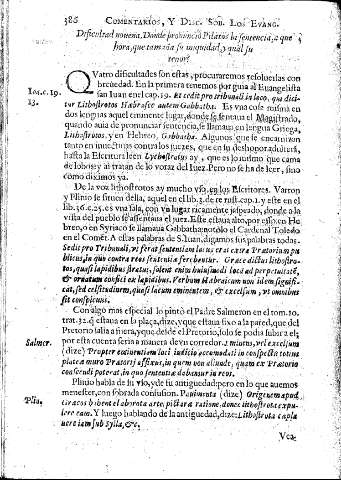 386 COMENTARIOS, Y DISC. SOB. LOS EVANG.
Dificultad novena, Donde pronunciò Pilatos la sentencia, a que
hora, que tamaña su iniquidad, y qual su
tenor?
QVatro dificultades son estas, procuraremos resoluerlas con
breuedad. En la primera tenemos por guia al Euangelista
Ioa. c. 19. san Iuan en el cap. 19. Et sedit pro tribunali in loco, qui dici-
13. tur Lithostrotos Habraice autem Gabbatha. Es vna cosa misma en
dos lenguas aquel eminente lugar, donde se sentaua el Magistrado,
quando auia de pronunciar sentencia, se llamaua en lengua Griega,
Lithostrotos, y en Hebreo, Gabbatha. Algunos que se encarniran
tanto en inuectiuas contra los juezes, que en su deshonor adulterã,
hasta la Escritura leen Lychostratus ay, que es lo mismo que cama
de lobos: y ai tratan de lo voraz del Iuez. Pero no se ha de leer, sino
como diximos ya.
De la voz lithostrotos ay mucho vso en los Escritores. Varron
y Plinio se siruen della, aquel en el lib. 3. de re rust. cap. 1. y este en el
lib. 36. c. 25. es vna sala, con vn lugar ricamente jaspeado, donde a la
vista del pueblo se assentaua el juez. Este estaua alto, por esso en He
breo, o en Syriaco se llamaua Gabbatha: notólo el Cardenal Toledo
en el Comẽt. A estas palabras de S. Iuan, digamos sus palabras todas.
Sedit pro Tribunali, vt ferat sententiam locus erat extra Praetorium pu
blicus, in quo contra reos sententia ferebentur. Graece dictus lithostro-
tos, quasi lapidibus stratus, solent enim huiusmodi loca ad perpetuitatẽ,
& ornatum confici ex lapidibus. Verbum Habraicum non idem signifi-
cat, sed celsitudinem, quasi locum eminentem, & excelsum, vt omnibus
sit conspicuus.
Con algo mas especial lo pintó el Padre Salmeron en el tom. 10.
trat. 32. q̃ estaua en la plaça, dize, y que estaua fixo a la pared, que del
Pretorio salia a fuera, y que desde el Pretorio, solo se podia subir a el:
por esta cuenta seria a manera de vn corredor. a minutus, vel excelsum
Salmer. (dize) Propter excipientiam loci iudicio accomodati in conspectu totius
platea muro Pratorij affixus, in quem non aliunde, quam ex Praetorio
conscendi poterat, in quo sententiae debeantur in reos.
Plinio habla de su vso, y de su antiguedad: pero en lo que auemos
menester, con sobrada confusion. Pauimenta (dize) Originem apud
Plin. Gracos habent elaborata arte, pictura ratione, donec lithostrota expu-
lere eam. Y luego hablando de la antiguedad, dize: Lithostrota capta
uere iam sub Sylla, &c.
Vea-